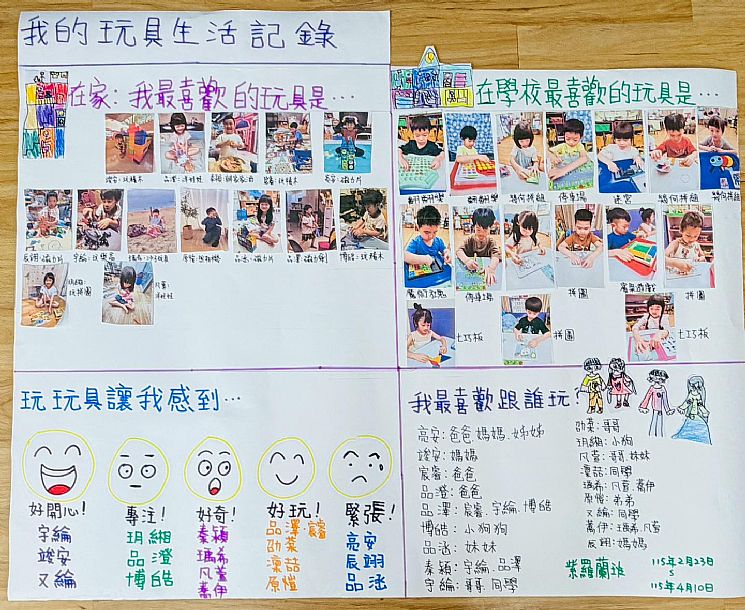 我的玩具生活記錄
在家：我最喜歡的玩具是…
竣安：玩積木
辰翊：磁力片
品涵：磁力片
博皓：玩積木
玩拼圖
在學校最喜歡的玩具是…
翻翻樂
翻翻樂
幾何拼組
停車場
迷宮
幾何拼組
幾何拼組
停車場
拼圖
拼圖
七巧板
拼圖
七巧板
玩玩具讓我感到…
好開心！
宇綸
竣安
又綸
專注！
玥緗
品澄
博皓
好奇！
秦穎
瑀希
凡萱
蕎伊
好玩！
品澤 宸睿
劭棻
澟喆
原愷
緊張！
亮安
辰翊
品涵
我最喜歡跟誰玩？
亮安：爸爸、媽媽、姊姊
竣安：媽媽
宸睿：爸爸
品澄：爸爸
品澤：宸睿、宇綸、博皓
博皓：小狗狗
品涵：妹妹
秦穎：宇綸、品澤
宇綸：哥哥、同學
劭棻：哥哥
玥緗：小狗
凡萱：哥哥、妹妹
澟喆：同學
瑀希：凡萱、蕎伊
原愷：弟弟
又綸：同學
蕎伊：瑀希、凡萱
辰翊：媽媽
紫羅蘭班
115年2月23日
115年4月10日